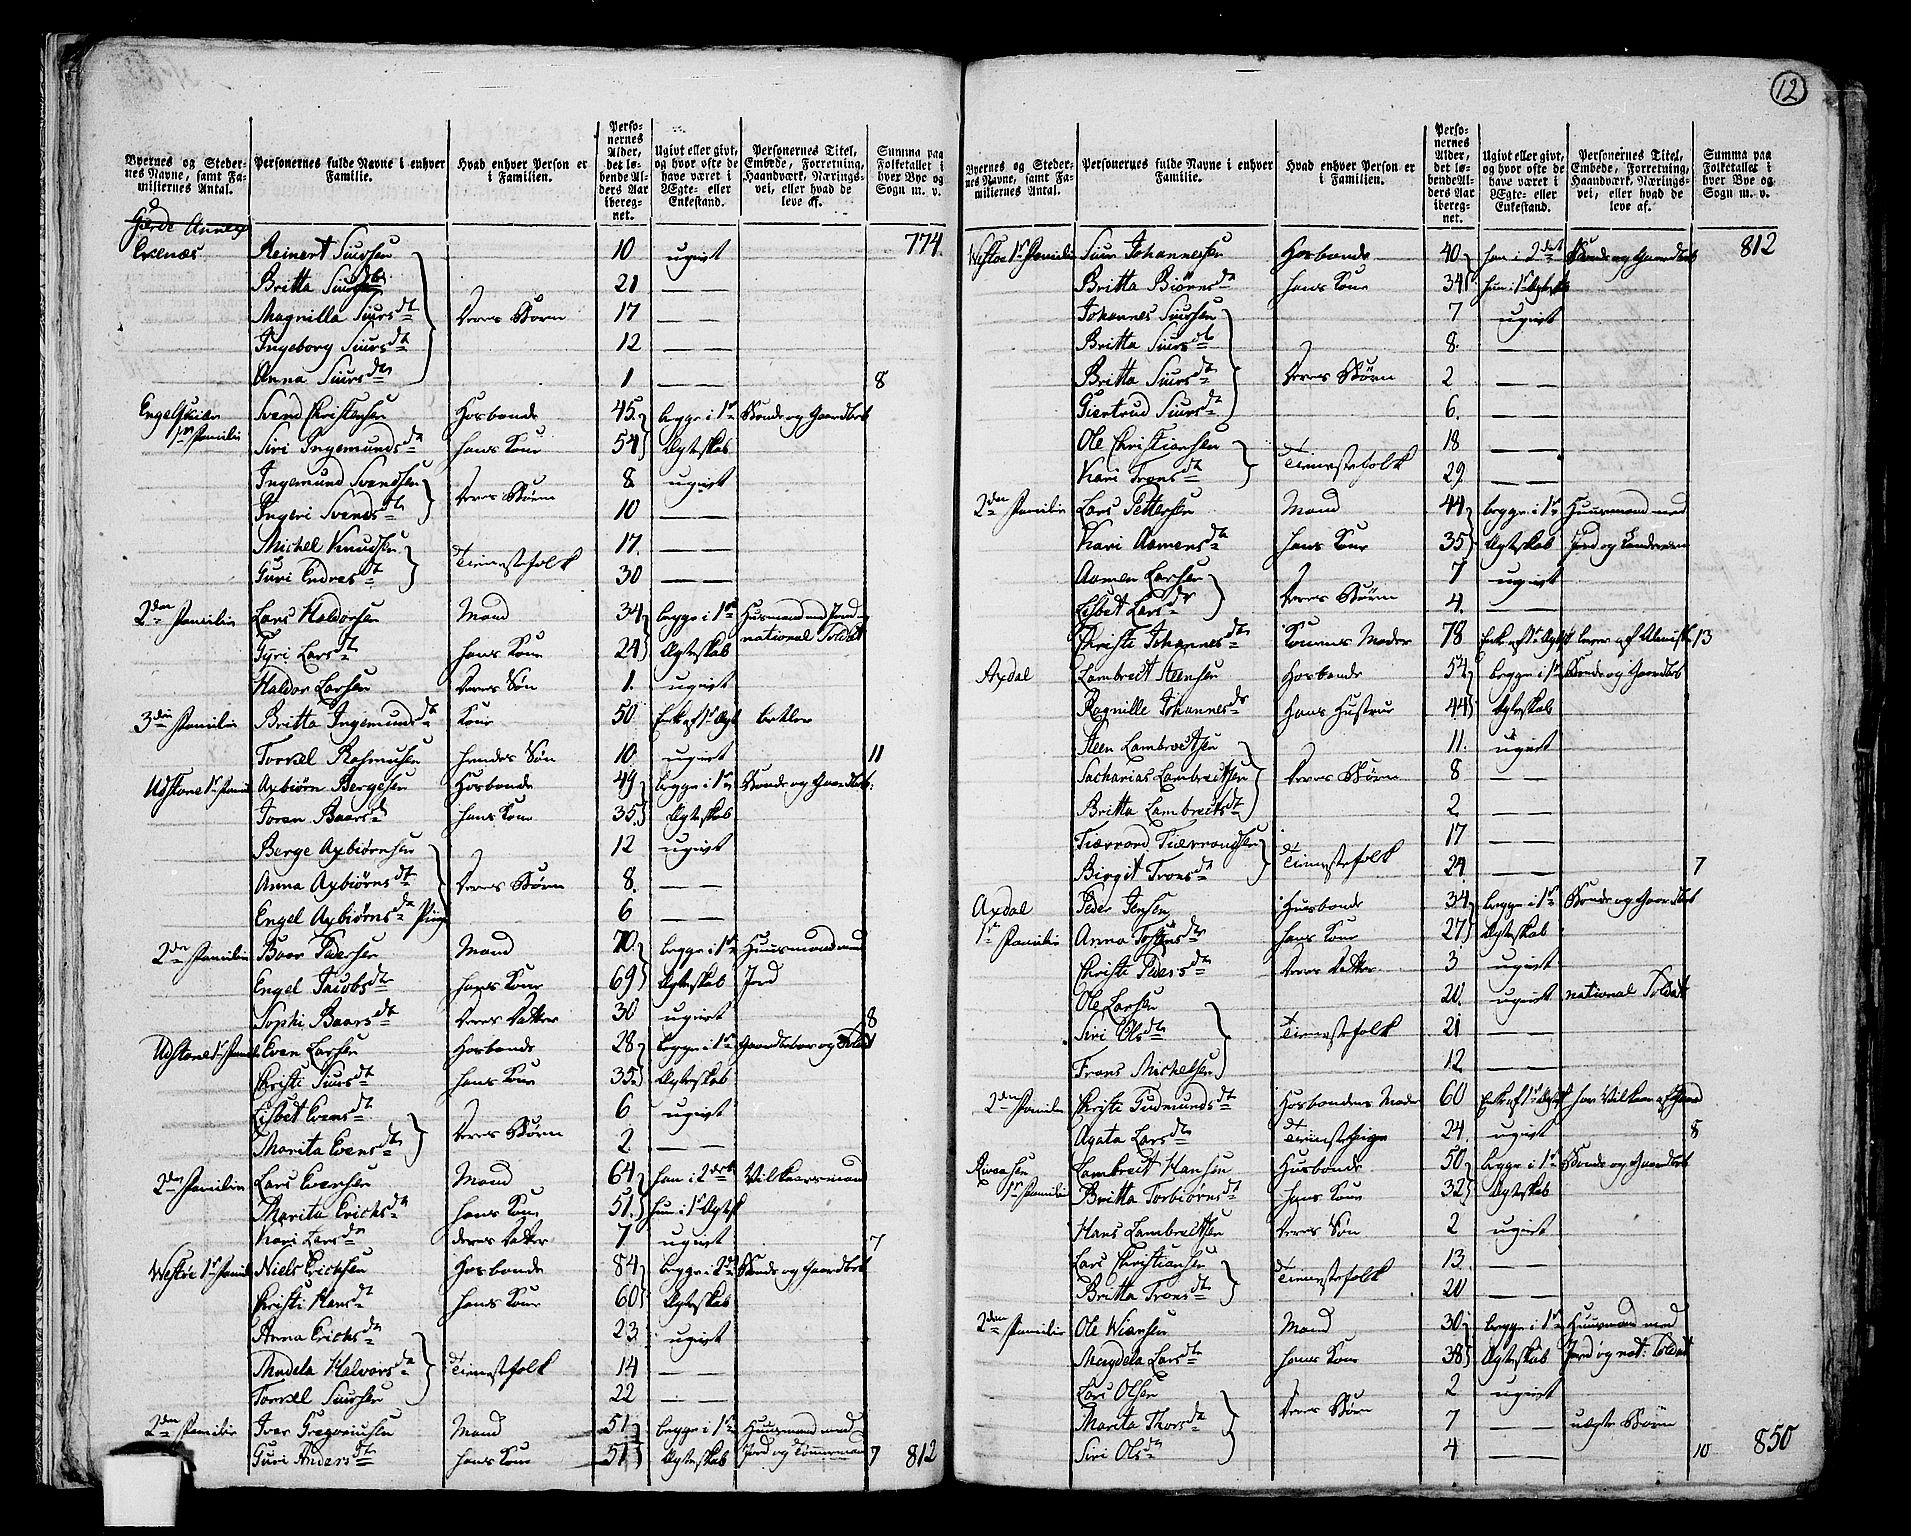 12
Byernes og Steder-
nes Navne, samt Fa-
miliernes Antal.
Personernes fulde Navne i enhver
Familie.
Hvad enhver Person er
i Familien.
Perso-
nernes
Alder,
det lø-
bende Al-
ders Aar
iberegnet.
Ugivt eller givt,
og hvor ofte de
have været i
Ægte- eller
Enkestand.
Personernes Titel,
Embede, Forretning,
Haandværk, Nærings-
vei, eller hvad de
leve af.
Summa paa
Folketallet i
hver Bye og
Sogn m. v.
Gierde Annex
Evenæs Reinert Siursen 10 ugivt 774
Britta Siursdt 21 — —
Magnilla Siursdt deres Børn 17 — —
Ingeborg Siursdt 12 — —
Anna Siursdt 1 — — 8
Svend Christensen Hosbonde 45 begge i 1st Bonde og Gaardbeb
1st Familie Siri Ingemundsdt hans Kone 54 Ægteskab
Ingemund Svendsen 8 ugivt
Ingeri Svendsdt deres Børn 10 — —
Michel Knudsen 17 — —
Guri Endresdt Tienestefolk 30 — —
2den Familie Lars Haldorsen Mand 34 begge i 1st Husmand med Jord og
Gyri Larsdt hans Kone 24 Ægteskab national Soldat
Haldor Larsen deres Søn 1 ugivt
3die Familie Britta Ingemundsdt Kone 50 Enke eft 1st Ægt betler
Torkel Rasmusen hendes Søn 10 ugivt 11
Udstone 1st Famil Axbiørn Bergesen Hosbonde 49 begge i 1st Bonde og Gaardbeb:
Joren Baarsd hans Kone 35 Ægteskab
Berge Axbiørnsen 12 ugivt
Anna Axbiørnsdt deres Børn 8 — —
Engel Axbiørnsdt Piige 6 — —
2den Familie Baar Pedersen Mand 70 begge i 1st Huusmand med
Engel Jacobsdt hans Kone 69 Ægteskab Jord
Sophi Baarsdt deres Datter 30 ugivt 8
Udstone 1st Famil Even Larsen Hosbonde 28 begge i 1st Gaardbeboer og Soldat
Christi Siursdt hans Kone 35 Ægteskab
Lisbet Evensdt 6 ugivt
Marita Evensdt deres Børn 2 — —
2den Familie Lars Evensen Mand 64 han i 2det Vilkaarsmand
Marita Erichsdt hans Kone 51 hun i 1st Ægtesk
Kari Larsdt deres Datter 7 ugivt 7
Westøe 1st Famil Niels Erichsen Hosbonde 84 begge i 2det Bonde og Gaardbeb
Christi Hansdt hans Kone 60 Ægteskab
Anna Erichsdt 23 ugivt
Madela Halvorsdt Tienestefolk 14 — —
Torkel Siursen 22 — —
2den Familie Iver Gregoriusen Mand 51 begge i 1st Huusmand med
Guri Andersdt hans Kone 51 Ægteskab Jord og Tømmermand 7 812
Byernes og Steder-
nes Navne, samt Fa-
miliernes Antal.
Personernes fulde Navne i enhver
Familie.
Hvad enhver Person er
i Familien.
Perso-
nernes
Alder,
det lø-
bende Al-
ders Aar
iberegnet.
Ugivt eller givt,
og hvor ofte de
have været i
Ægte- eller
Enkestand.
Personernes Titel,
Embede, Forretning,
Haandværk, Nærings-
vei, eller hvad de
leve af.
Summa paa
Folketallet i
hver Bye og
Sogn m. v.
Westøe 1st Familie Siur Johannessen Hosbonde 40 han i 2det Bonde og Gaardbeb 812
Britta Biørnsdt hans Kone 34 hun i 1st Ægtesk
Johannes Siursen 7 ugivt
Britta Siursdt 8 — —
Britta Siursdt deres Børn 2 — —
Giertrud Siursdt 6 — —
Ole Christiansen 18 — —
Kari Tronsdt Tienestefolk 29 — —
2den Familie Lars Pettersen Mand 44 begge i 1st Huusmand med
Kari Aamensdt hans Kone 35 Ægteskab Jord og
Aamen Larsen 7 ugivt
Lisbet Larsdt deres Børn 4 — —
Christi Johannesdt Konens Moder 78 Enke eft 1st Ægt lever af Almisse 13
Axdal Lambrect Steensen Hosbonde 54 begge i 1st Bonde og Gaardbeb
Ragnille Johannesdt hans Hustrue 44 Ægteskab
Steen Lambrectsen 11 ugivt
Sacharias Lambrectsen deres Børn 8 — —
Britta Lambrectsdt 2 — —
17 — —
Birgit Tronsdt Tienestefolk 24 — — 7
Axdal Peder Jensen Huusbonde 34 begge i 1st Bonde og Gaardbeb
1st Familie Anna hans Kone 27 Ægteskab
Christi Pedersdt deres Datter 3 ugivt
Ole Larsen 20 ugivt national Soldat
Siri Olsdt Tienestefolk 21 — —
Frans Michelsen 12 — —
2den Familie Christi Gudmundsdt Hosbondens Moder 60 Enke eft 1st Ægtesk har Vilkaar af Gaard
Agata Larsdt Tienestepige 24 ugivt 8
Lambrect Hansen Huusbonde 50 begge i 1st Bonde og Gaardbeb
1st Familie Britta Torbiørnsdt hans Kone 32 Ægteskab
Hans Lambrectsen deres Søn 2 ugivt
Lars Christiansen 13 — —
Britta Tronsdt Tienestefolk 20 — —
2den Familie Ole Wiansen Mand 30 begge i 1st Huusmand med
Magdela Larsdt hans Kone 38 Ægteskab Jord og nat: Soldat
Lars Olsen 2 ugivt
Marita Thorsdt deres Børn 7 — — uægte Børn
Siri Olsdt 4 — — 10 850